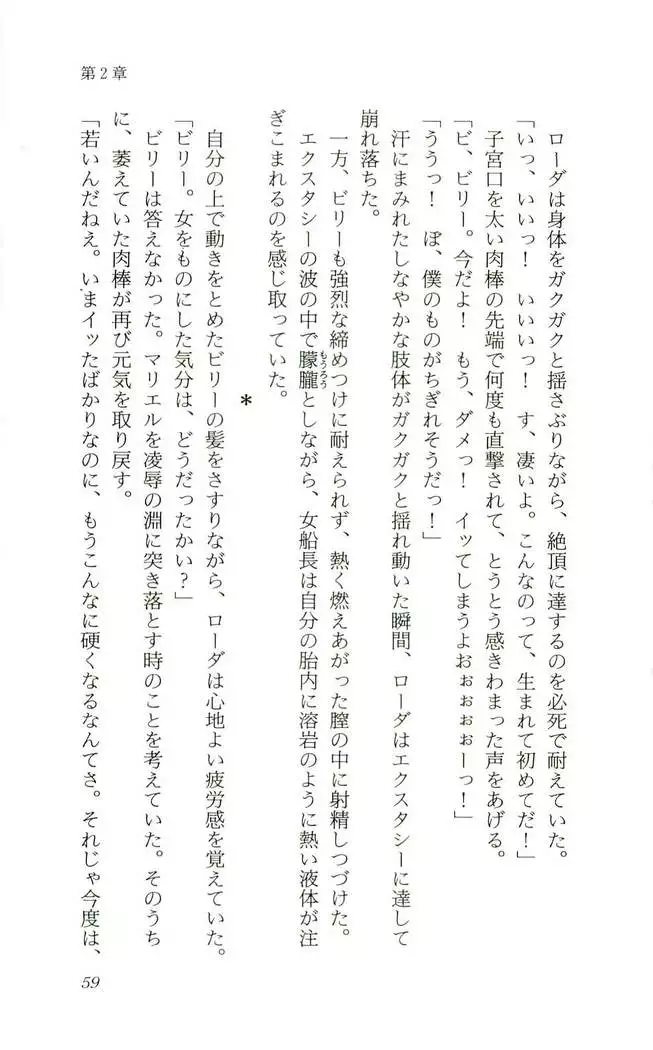 第2章
ローダは身体をガクガクと揺さぶりながら、絶頂に達するのを必死で耐えていた。
「いっ、いいっ!　いいいっ!　す、凄いよ。こんなのって、生まれて初めてだ!」
子宮口を太い肉棒の先端で何度も直撃されて、とうとう感きわまった声をあげる。
「ビ、ビリー。今だよ!　もう、ダメっ!　イッてしまうよおぉぉぉーっ!」
「ううっ!　ぼ、僕のものがちぎれそうだっ!」
汗にまみれたしなやかな肢体がガクガクと揺れ動いた瞬間、ローダはエクスタシーに達して
崩れ落ちた。
一方、ビリーも強烈な締めつけに耐えられず、熱く燃えあがった膣の中に射精しつづけた。
エクスタシーの波の中で朦朧としながら、女船長は自分の胎内に溶岩のように熱い液体が注
ぎこまれるのを感じ取っていた。
*
自分の上で動きをとめたビリーの髪をさすりながら、ローダは心地よい疲労感を覚えていた。
「ビリー。女をものにした気分は、どうだったかい?」
ビリーは答えなかった。マリエルを凌辱の淵に突き落とす時のことを考えていた。そのうち
に、萎えていた肉棒が再び元気を取り戻す。
「若いんだねえ。いまイッたばかりなのに、もうこんなに硬くなるなんてさ。それじゃ今度は、
59